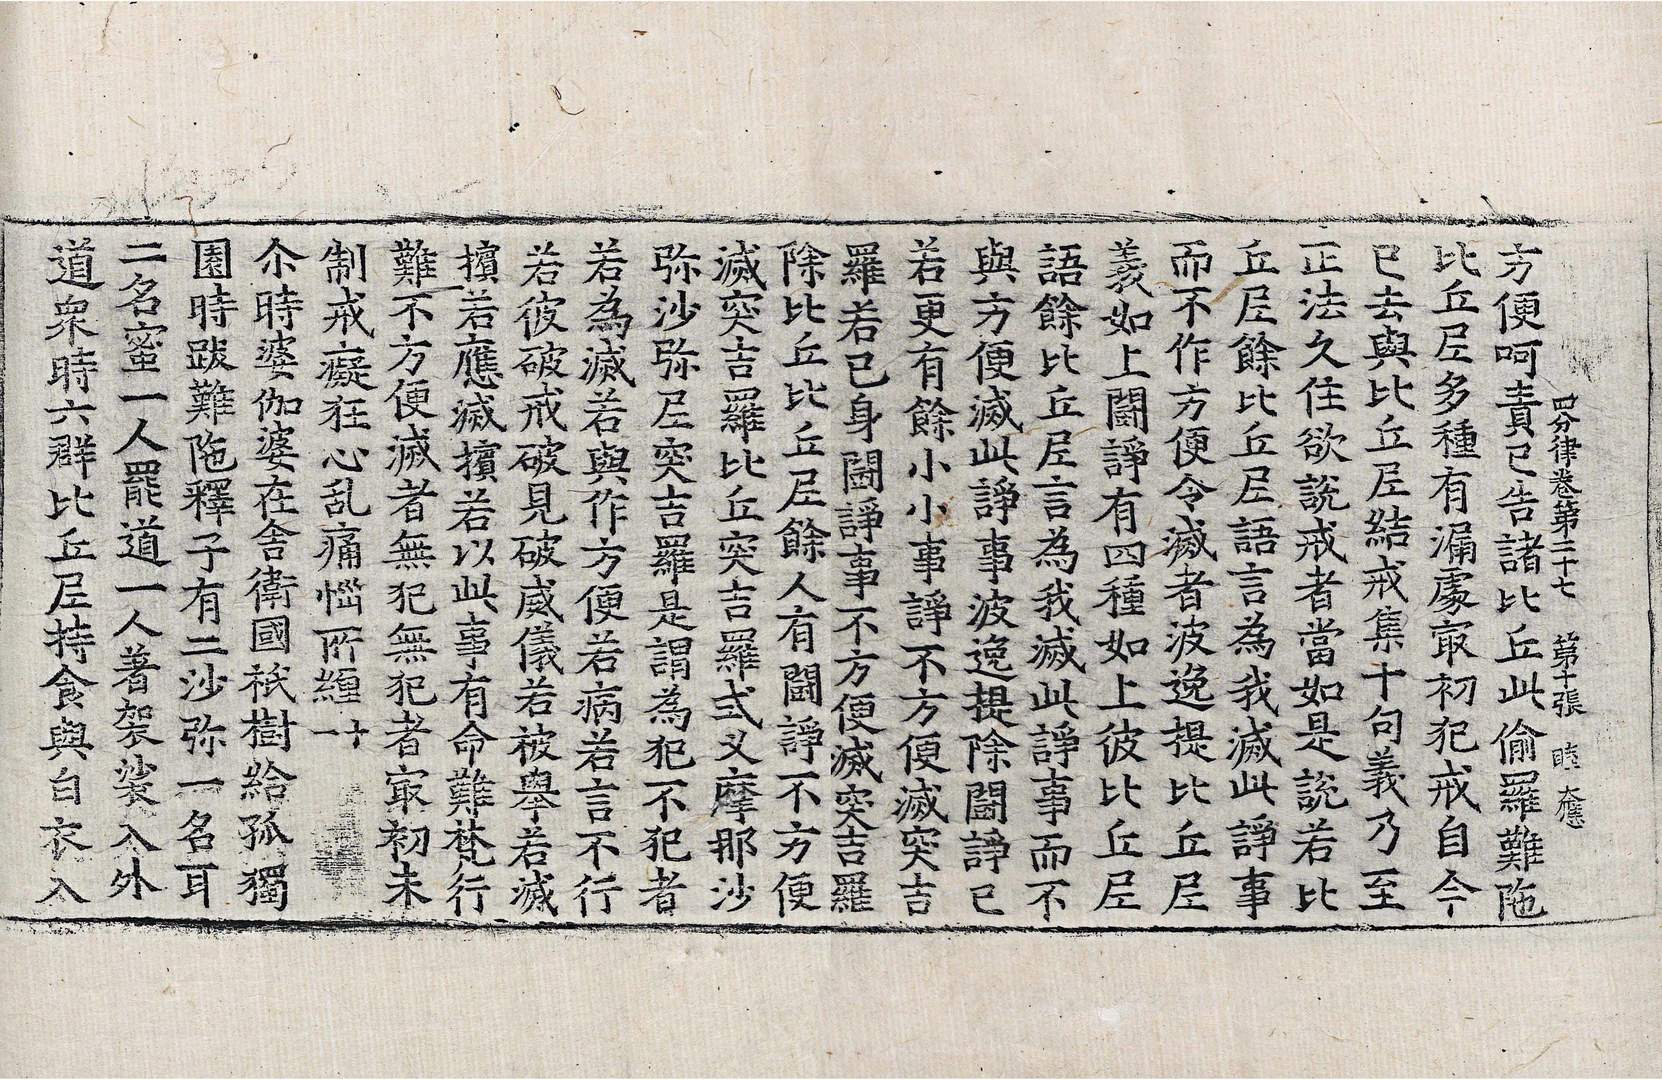 四分律卷第二十七　第十張　睦　大應
方便呵責已告諸比丘此偷羅難陁
比丘尼多種有漏處冣初犯戒自今
已去與比丘尼結戒集十句義乃至
正法久住欲說戒者當如是說若比
丘尼餘比丘尼語言為我滅此諍事
而不作方便令滅者波逸提比丘尼
義如上鬪諍有四種如上彼比丘尼
語餘比丘尼言為我滅此諍事而不
與方便滅此諍事波逸提除鬪諍已
若更有餘小小事諍不方便滅突吉
羅若已身鬪諍事不方便滅突吉羅
除比丘比丘尼餘人有鬪諍不方便
滅突吉羅比丘突吉羅式叉摩那沙
弥沙弥尼突吉羅是謂為犯不犯者
若為滅若與作方便若病若言不行
若彼破戒破見破威儀若被舉若滅
擯若應滅擯若以此事有命難梵行
難不方便滅者無犯無犯者冣初未
制戒癡狂心乱痛惱所纏一十
尒時婆伽婆在舍衛國祇樹給孤獨
園時跋難陁釋子有二沙弥一名耳
二名蜜一人罷道一人著袈裟入外
道衆時六群比丘尼持食與白衣入